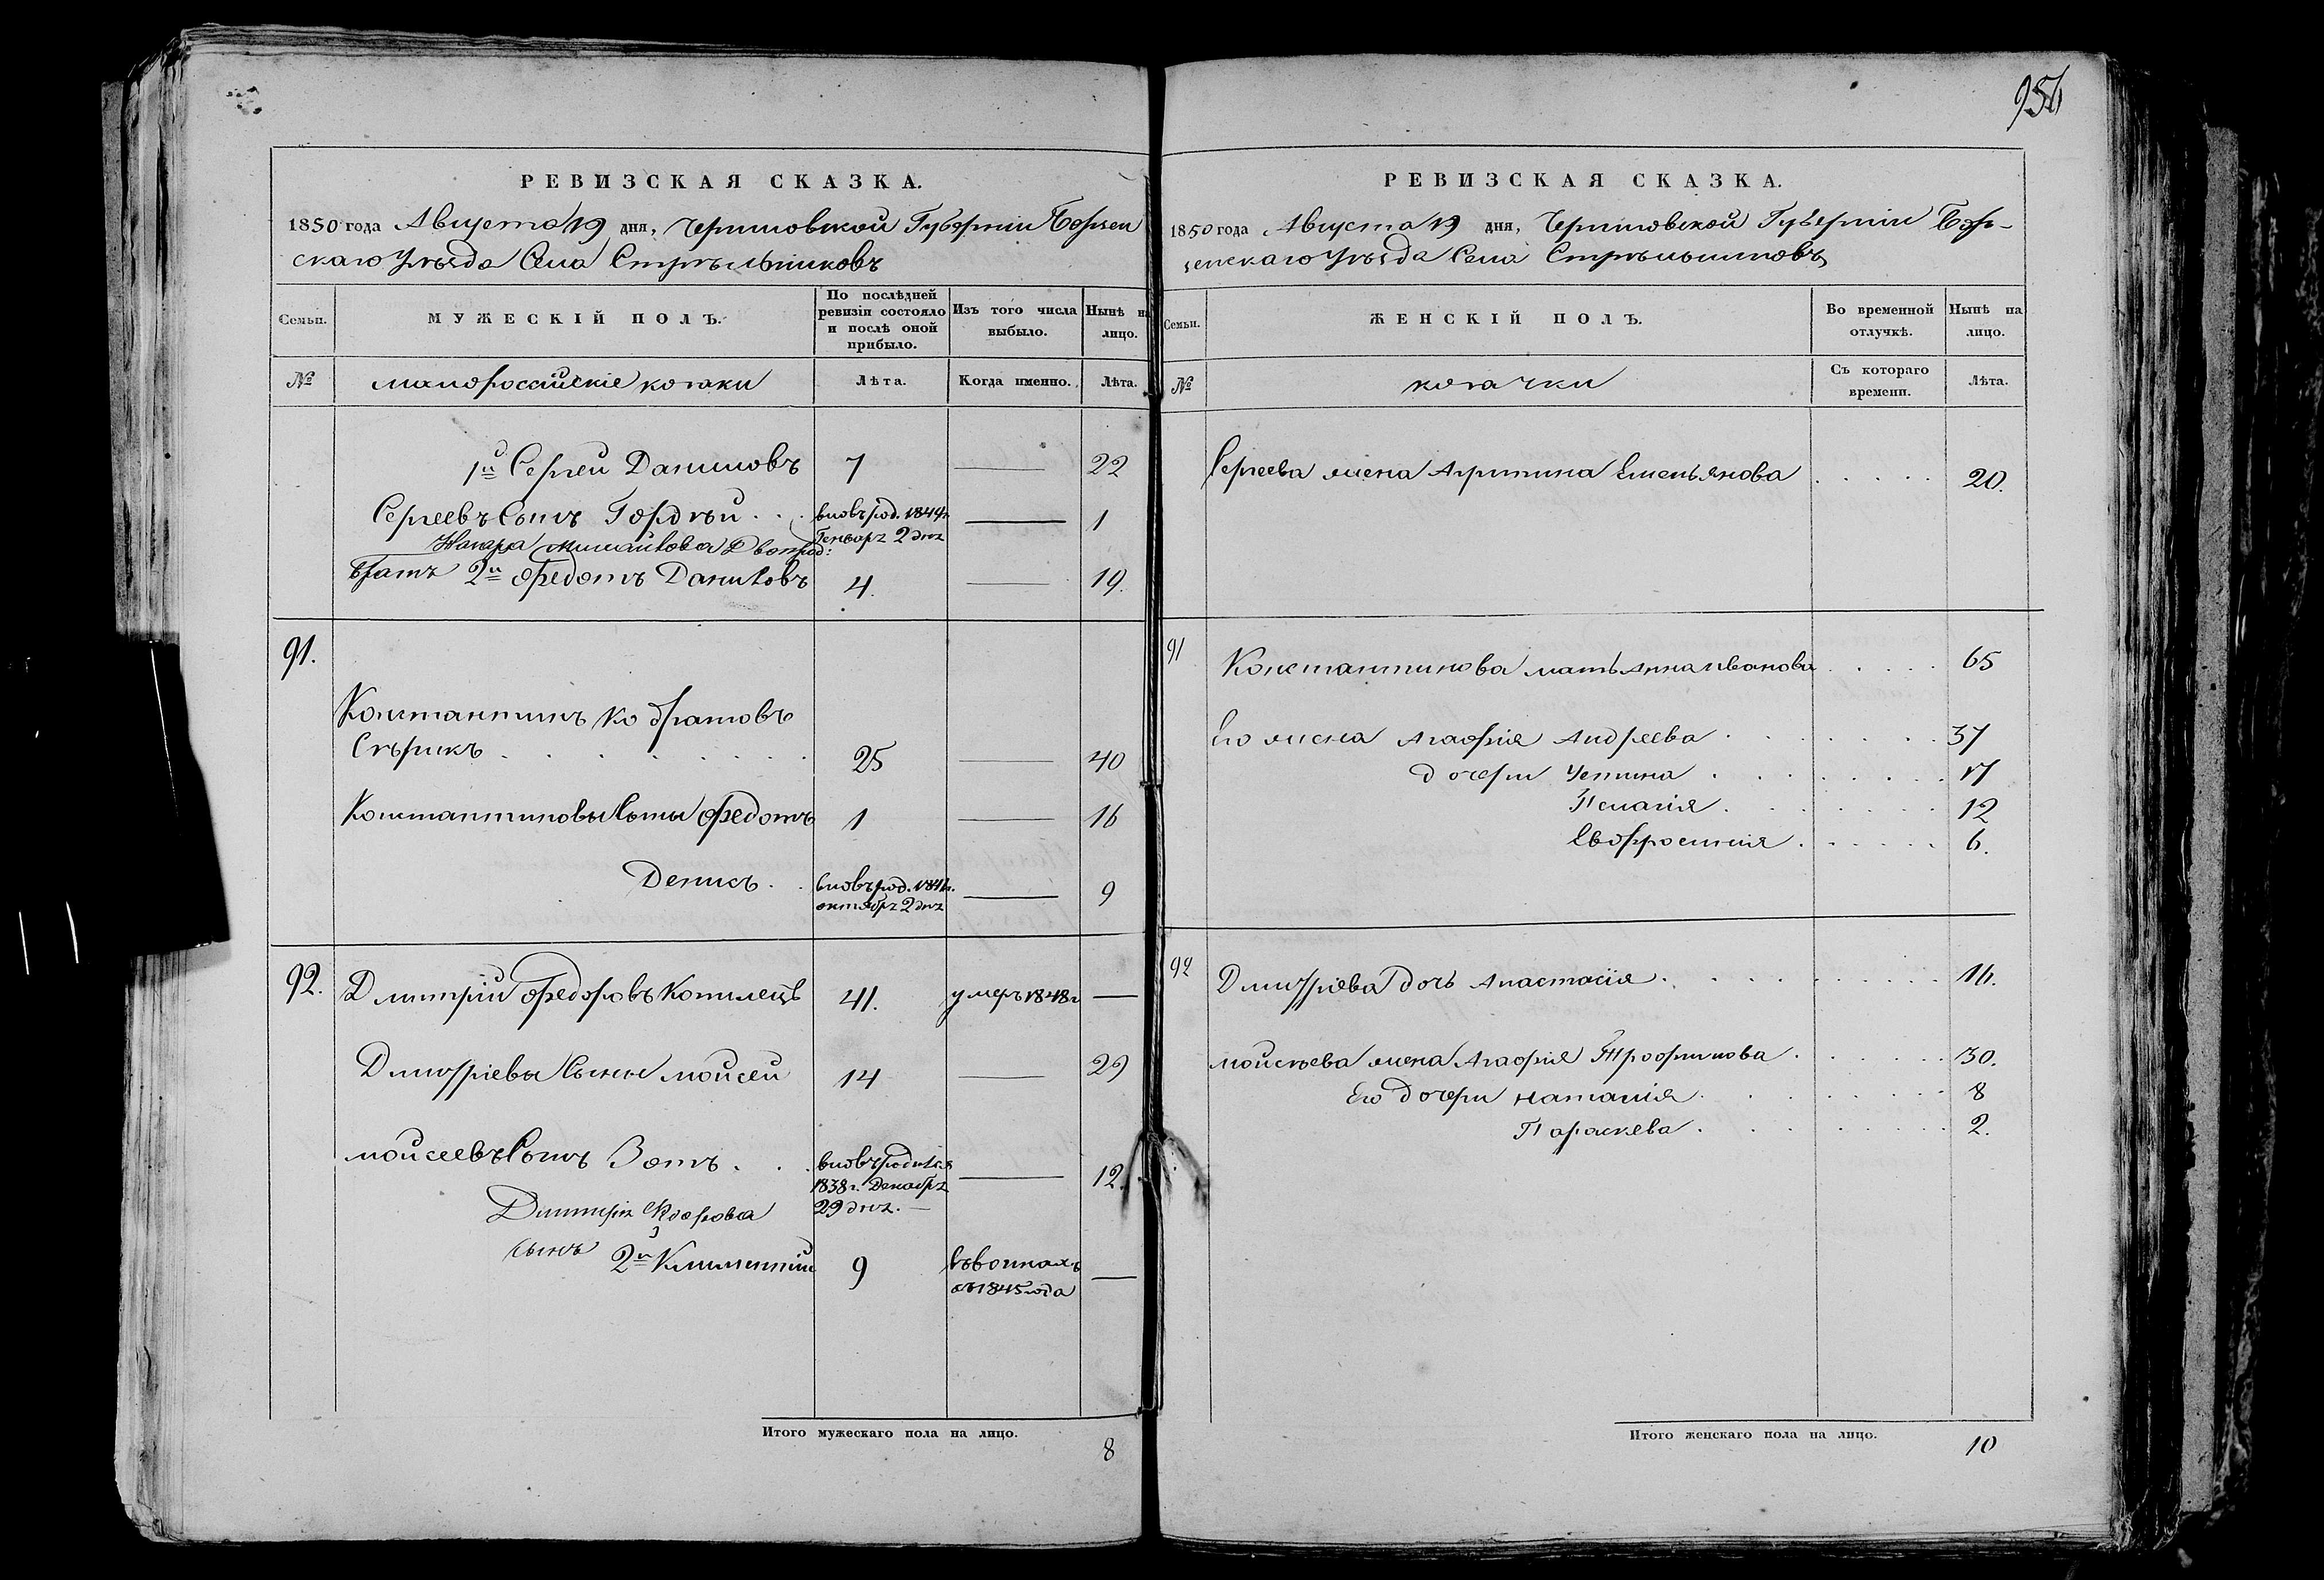 956
РЕВИЗСКАЯ СКАЗКА.
1850 года Августа 19 дня, Черниговской Губернии Борзен
скаго Уезда Села Стрельниковъ
Семьи.
МУЖЕСКІЙ ПОЛЪ.
По послѣдней ревизіи состояло и послѣ оной прибыло.
Изъ того числа выбыло.
Нынѣ на лицо.
№
малороссійскіе козаки
Лѣта.
Когда именно.
Лѣта.
1й Сергей Даниловъ 7 — 22
Сергеевъ сынъ Гордѣй . . вновь род. 1849г. Генваря 2 дня — 1
Михайлова Двоюрод:
братъ 2й Федотъ Даниловъ 4. — 19.
91.
Константинъ Кодратовъ
Сѣрикъ . . . . . . . 25 — 40
Константиновы сыны Федотъ 1 — 16
Денисъ . . вновь род. 1841г. октября 2 дня — 9
92. Дмитрій Федоровъ Копилецъ 41. умеръ 1848г —
Дмитріевы сыны Мойсей 14 — 29
Мойсеевъ сынъ Зотъ . . . вновь родился 1838г. Декабря 29 дня. — 12.
Дмитрія Федорова
сынъ 2й Климентій 9 въ воинахъ съ 1845 года —
Итого мужескаго пола на лицо. 8
РЕВИЗСКАЯ СКАЗКА.
1850 года Августа 19 дня, Черниговской Губерніи Бор-
зенскаго Уѣзда Села Стрѣльниковъ
Семьи.
ЖЕНСКІЙ ПОЛЪ.
Во временной отлучкѣ.
Нынѣ на лицо.
№
козачки
Съ котораго времени.
Лѣта.
Сергеева жена Агрипина Емельянова . . . . . 20.
91 Константинова мать Анна Иванова . . . . 65
Его жена Агафія Андреева . . . . . . . 37
дочери Устина . . . . . . . 17
Пелагія . . . . . . . 12
Евфросинія . . . . . . 6.
92 Дмитріева дочь Анастасія . . . . . . . . . 16.
Мойсѣева жена Агафія Трофимова . . . . . . 30.
Его дочери Наталія . . . . . . . 8
Параскева . . . . . . . 2.
Итого женскаго пола на лицо. 10